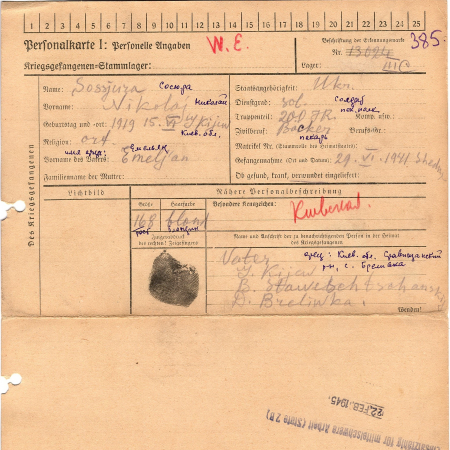 1 2 3 4 5 6 7 8 9 10 11 12 13 14 15 16 17 18 19 20 21 22 23 24 25
Personalkarte I: Personelle Angaben
W. E.
Beschriftung der Erkennungsmarke
Nr. 13694
385.
Kriegsgefangenen-Stammlager:
Lager: III C
Des Kriegsgefangenen
Name: Sossjura Сосюра
Vorname: Nikolaj Николай
Geburtstag und -ort: 1919 15. VI J. Kijew
Киев. обл.
Religion: ort.
Vorname des Vaters: Emeljan
Familienname der Mutter:
Staatsangehörigkeit: Ukr.
Dienstgrad: sol. солдат
Truppenteil: 200 J.R. Komp. usw.:
Zivilberuf: Bäcker Berufs-Gr.:
пекарь
Matrikel Nr. (Stammrolle des Heimatstaates):
Gefangennahme (Ort und Datum): 29. VI. 1941
Ob gesund, krank, verwundet eingeliefert:
Lichtbild
Nähere Personalbeschreibung
Größe
Haarfarbe
Besondere Kennzeichen:
168
blond
Kieferbruch
рост блондин
Fingerabdruck
des rechten! Zeigefingers
Name und Anschrift der zu benachrichtigenden Person in der Heimat
des Kriegsgefangenen
Vater
отец: Киев. обл.
J. Kijew
B.
D.
Wenden!
22. FEB. 1945.
Einsatzfähig für mittelschwere Arbeit (Stufe 2 B)